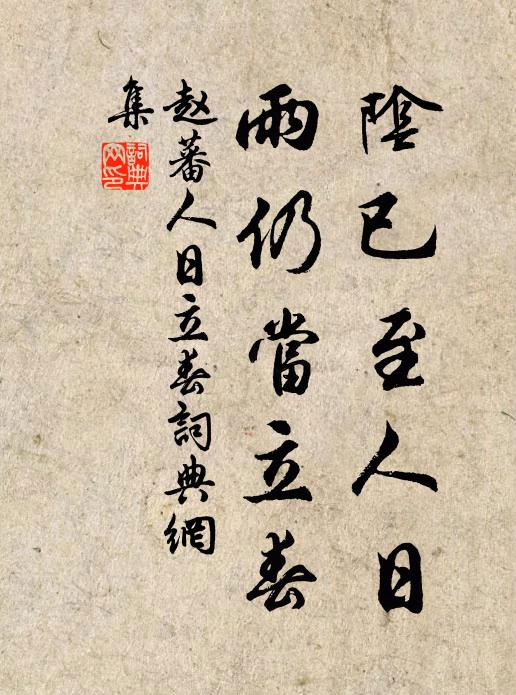 陰已至人日
雨仍當立春
赵蕃人日立春詞典網
集
詞典網印